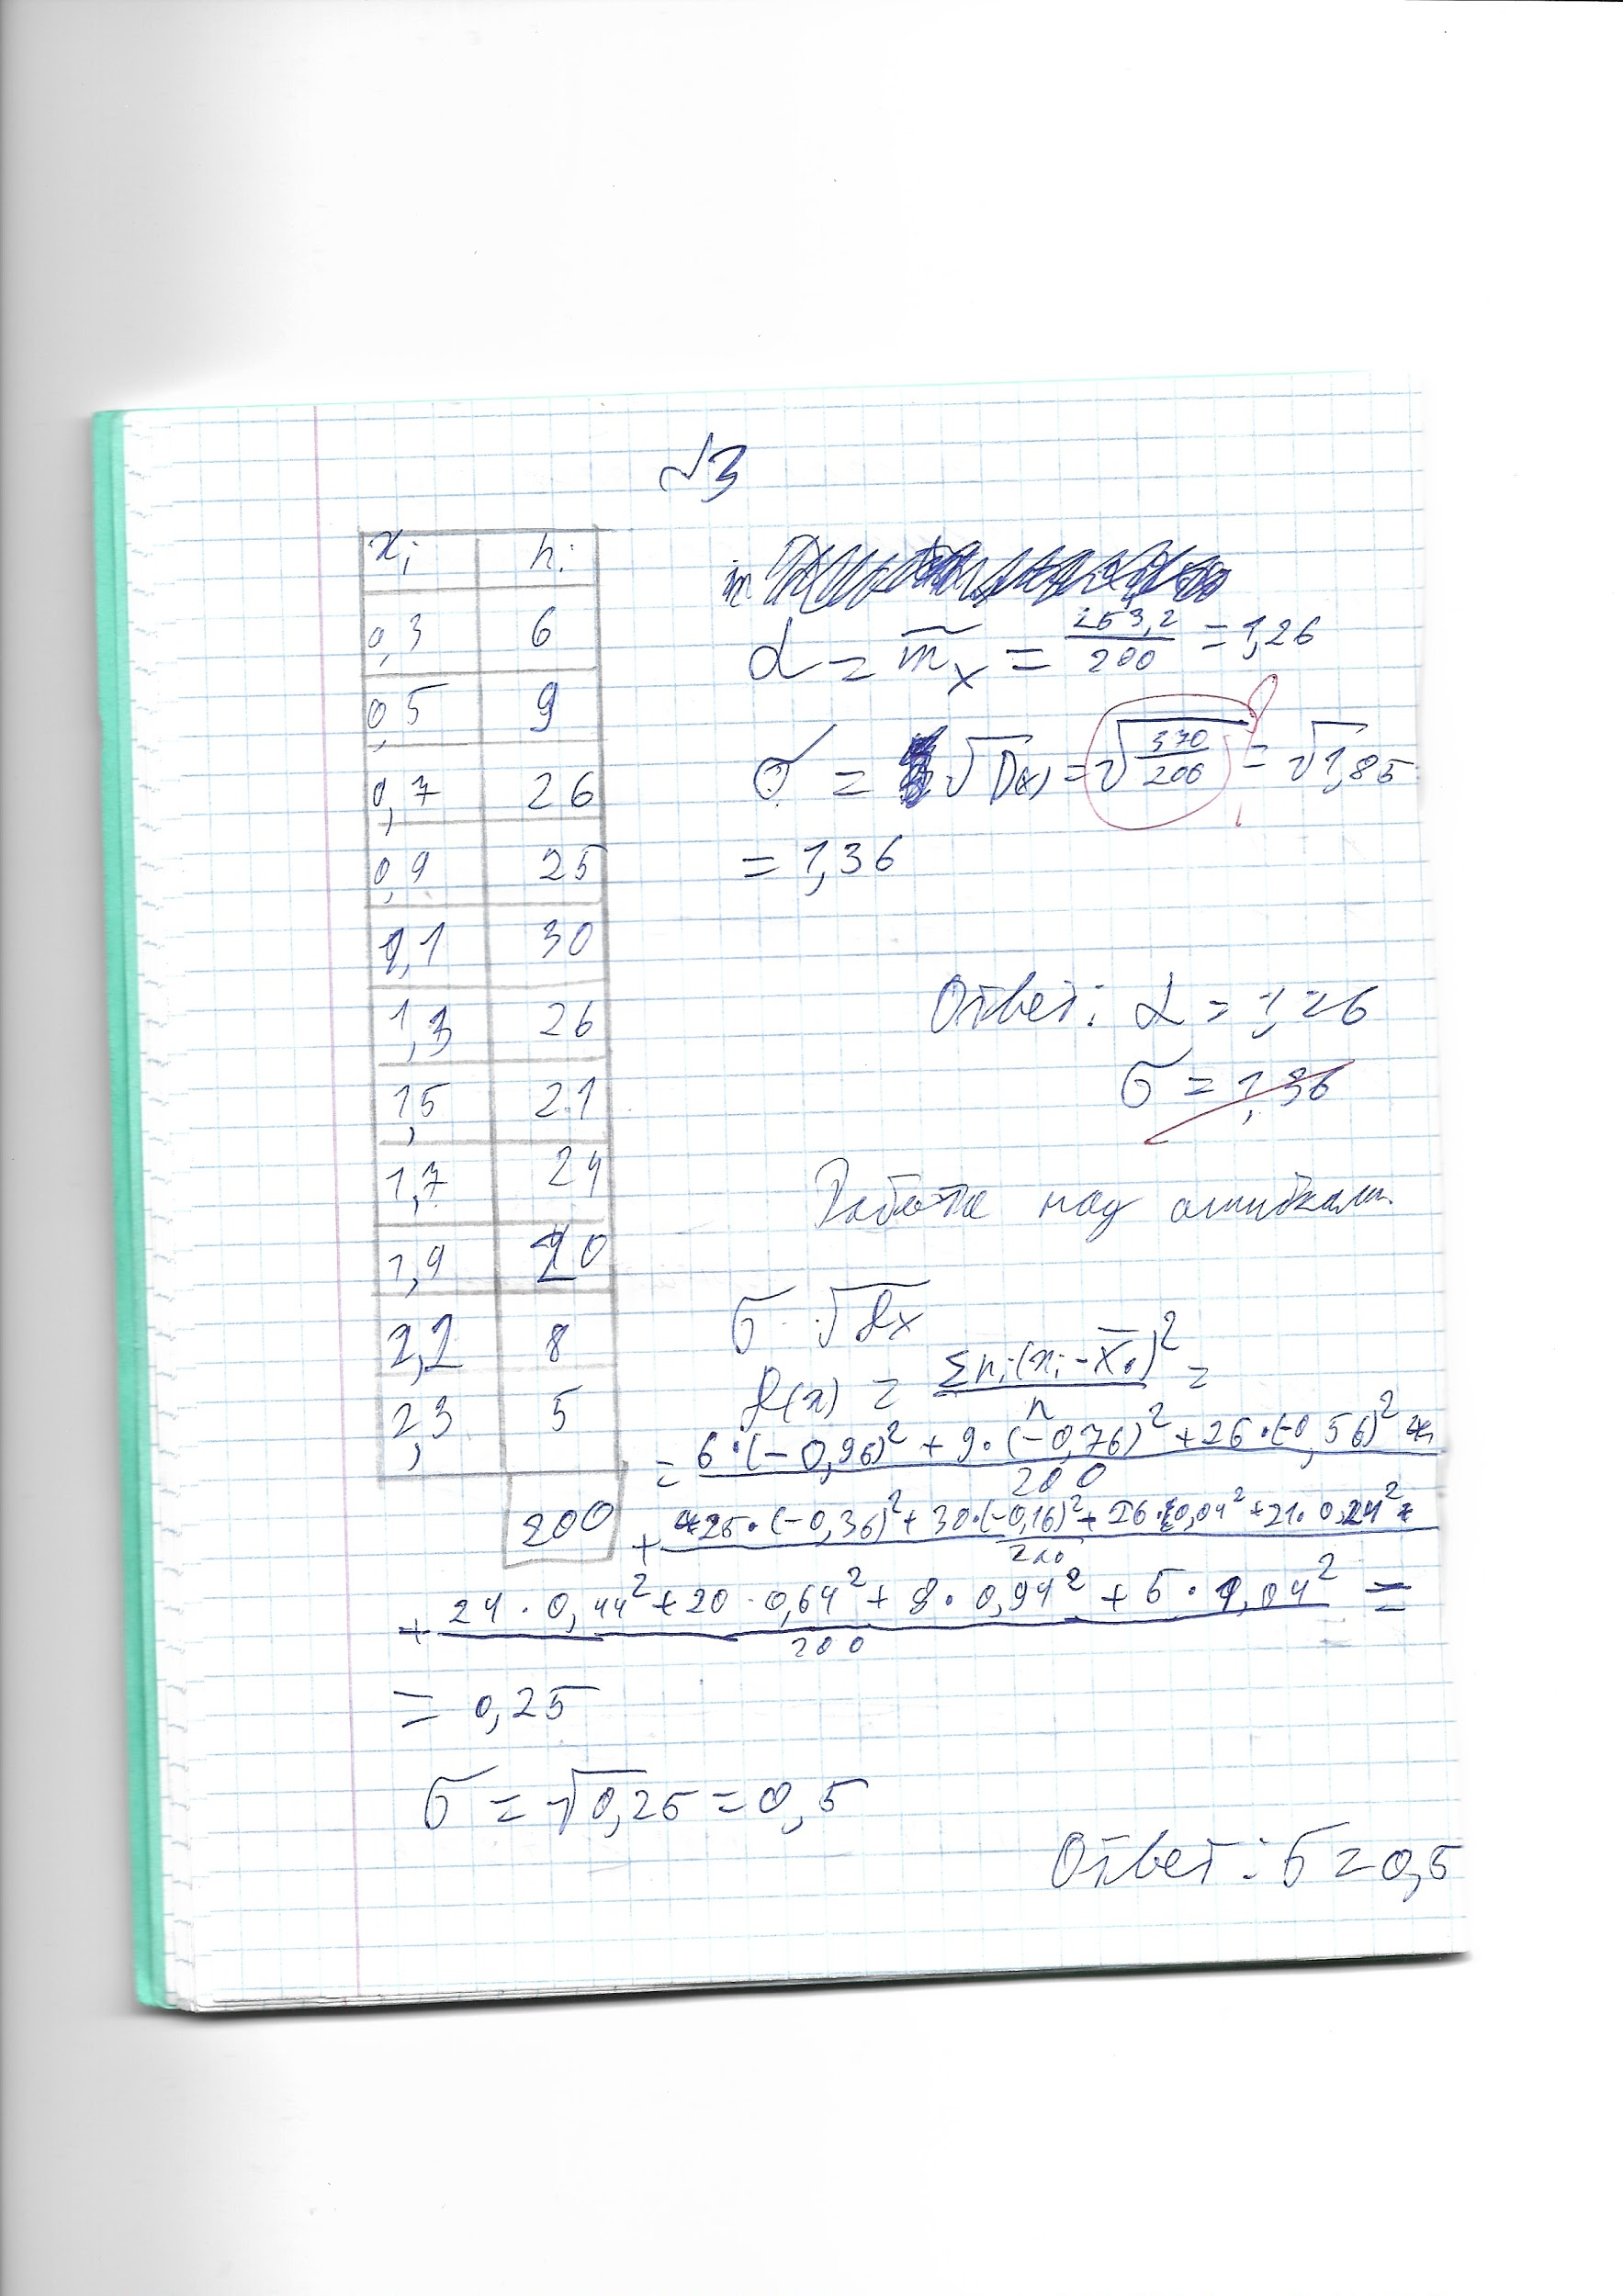 №3
xᵢ nᵢ
0,3 6
0,5 9
0,7 26
0,9 25
1,1 30
1,3 26
1,5 21
1,7 24
1,9 20
2,2 8
2,3 5
200
α = m̃ₓ = 253,2/200 = 1,26
σ = √D(x) = √370/200 = √1,85
= 1,36
Ответ: α = 1,26
σ = 1,36
Работа над ошибками.
σ √Dx
D(x) = Σnᵢ(xᵢ - x̄₀)²/n =
= 6·(-0,96)² + 9·(-0,76)² + 26·(-0,56)² +/200
+ +25·(-0,36)² + 30·(-0,16)² + 26·0,04² + 21·0,24² +/200
+ 24·0,44² + 20·0,64² + 8·0,94² + 5·1,04²/200 =
= 0,25
σ = √0,25 = 0,5
Ответ: σ = 0,5